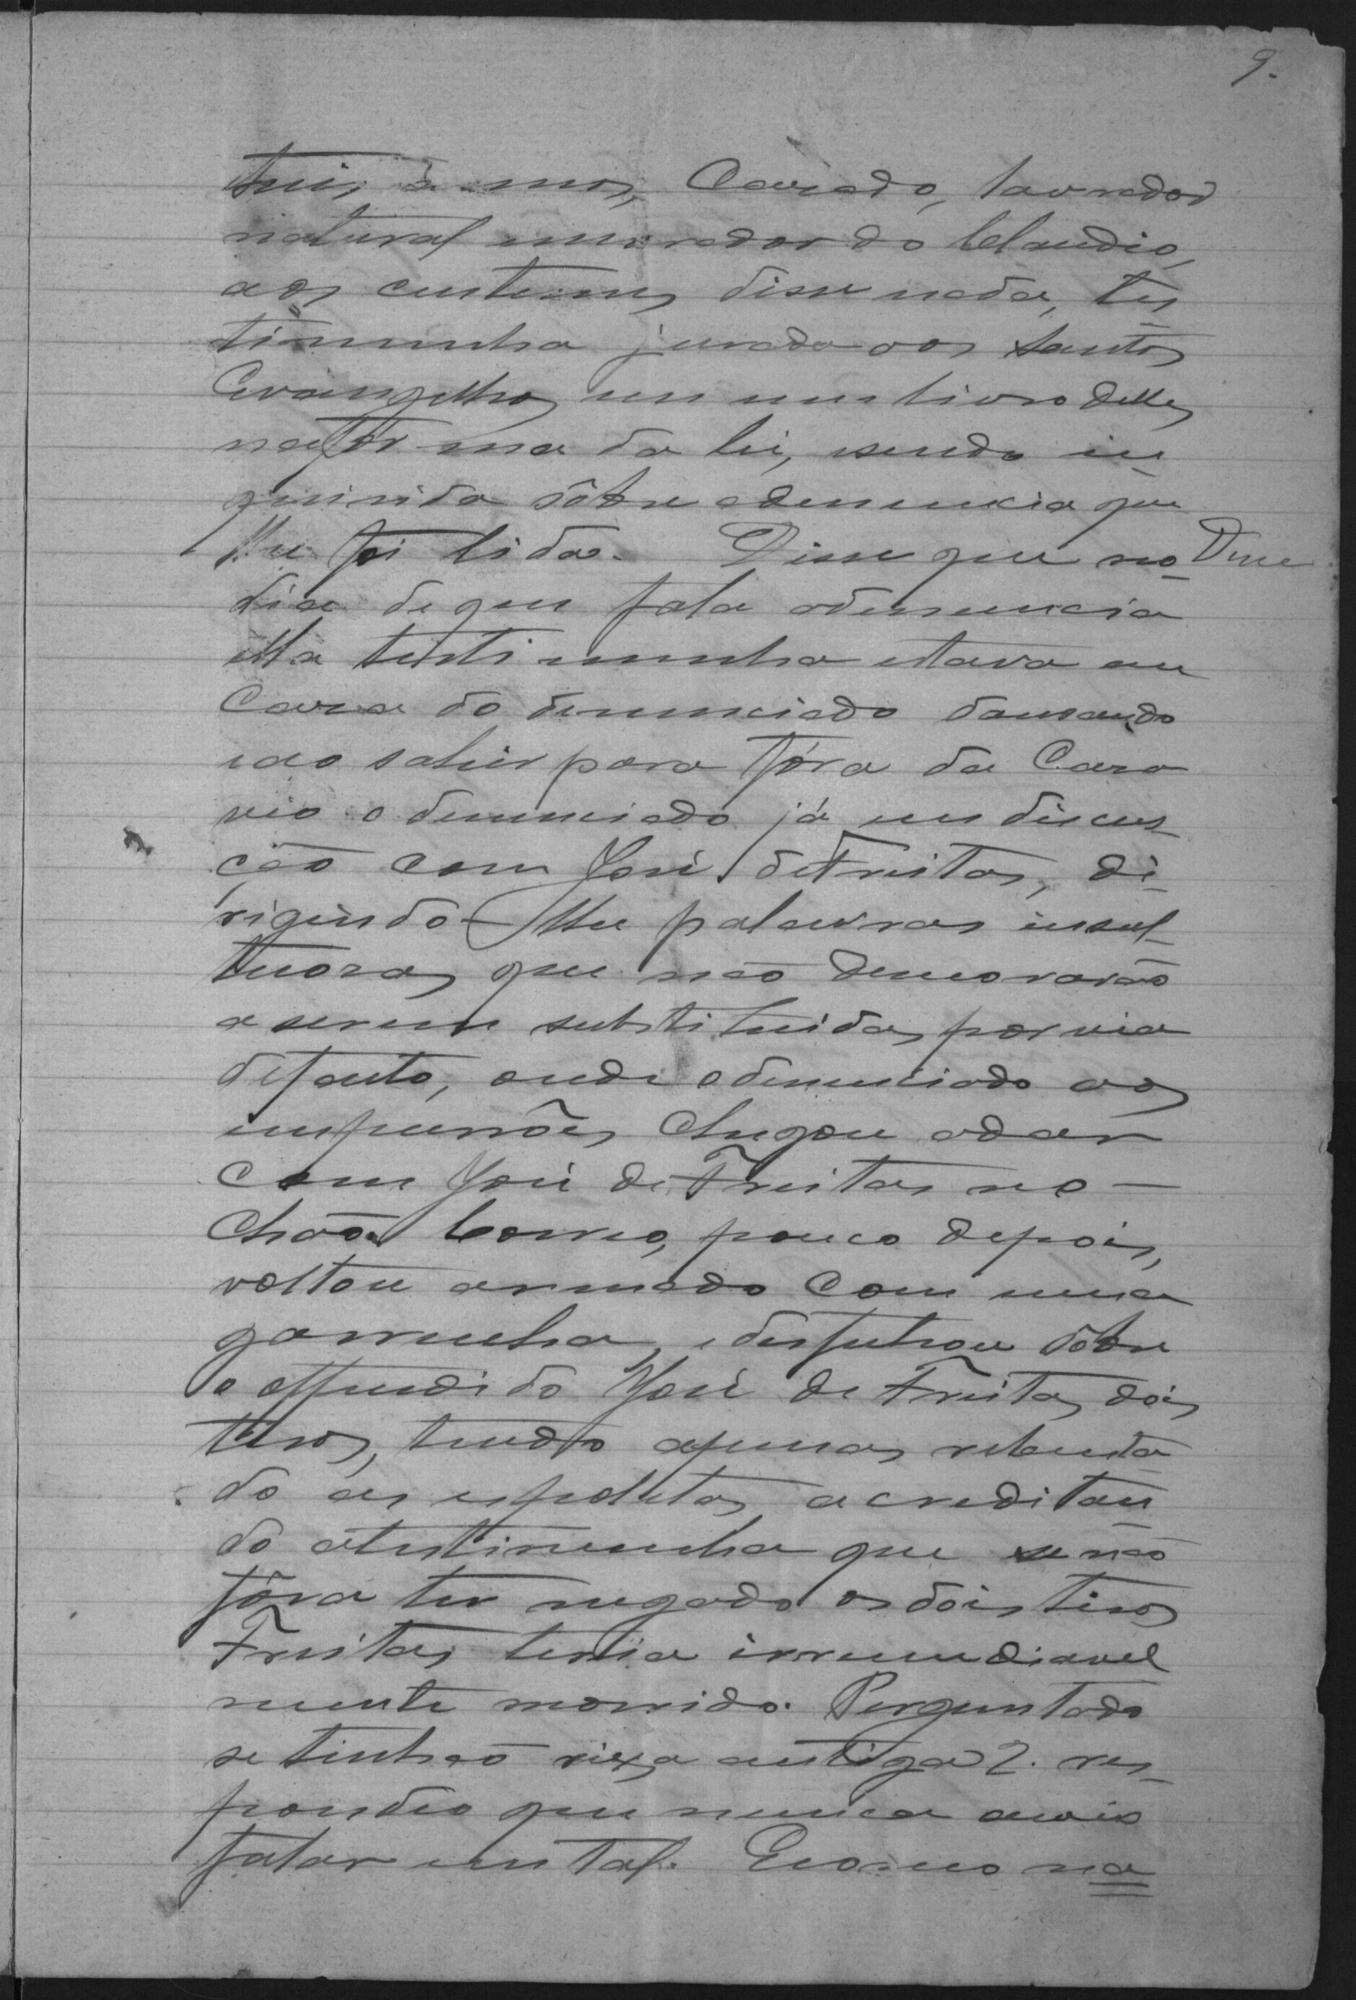 9.
tris annos, Casado, lavrador
natural e morador do Claudio,
aos custumes disse nada, tes
timunha jurada aos Santos
Evangelhos em um livro delles
na forma da lei, e sendo in-
quirida sôbre a denuncia que
lhe foi lida. Disse que no Disse
dia de que fala a denuncia
ella testimunha estava em
Casa do denunciado dansando
e ao sahir para fóra da Casa
vio o denunciado já em discus-
ção com José de Freitas, di-
rigindo-lhe palavras insul-
tuozas que não demorarão
a serem substituidas por via
de facto, onde o denunciado aos
impurrões chegou a dar
com José de Freitas no —
chão. Como, pouco depois,
voltou armado com uma
garrucha, e desfechou sôbre
o offendido José de Freitas dois
tiros, tendo apenas rebenta
do as espoletas, acreditan
do a testimunha que se não
fôra ter negado os dois tiros
Freitas teria irremediavel
mente morrido. Perguntado
se tinhão rixa antiga? res-
pondeo que nunca ouvio
falar em tal. E como na